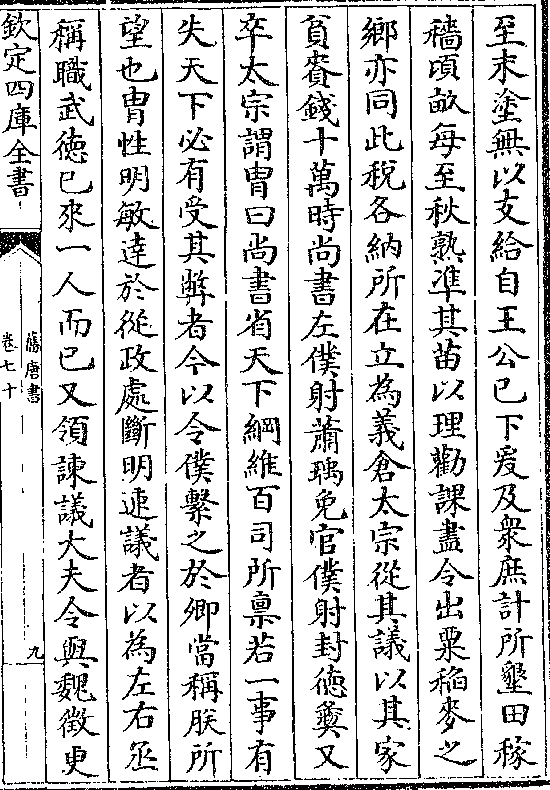 至末塗無以支給自王公已下爰及衆庶計所墾田稼
穡頃畝每至秋熟凖其苗以理勸課盡令出粟稻麥之
鄉亦同此稅各納所在立為義倉太宗從其議以其家
貧賚錢十萬時尚書左僕射蕭瑀免官僕射封徳彛又
卒太宗謂胄曰尚書省天下綱維百司所禀若一事有
失天下必有受其弊者今以令僕繫之於卿當稱朕所
望也胄性明敏達於從政處斷明速議者以為左右丞
稱職武徳已來一人而已又領諫議大夫令與魏徵更
欽定四庫全書
舊唐書
卷七十
九